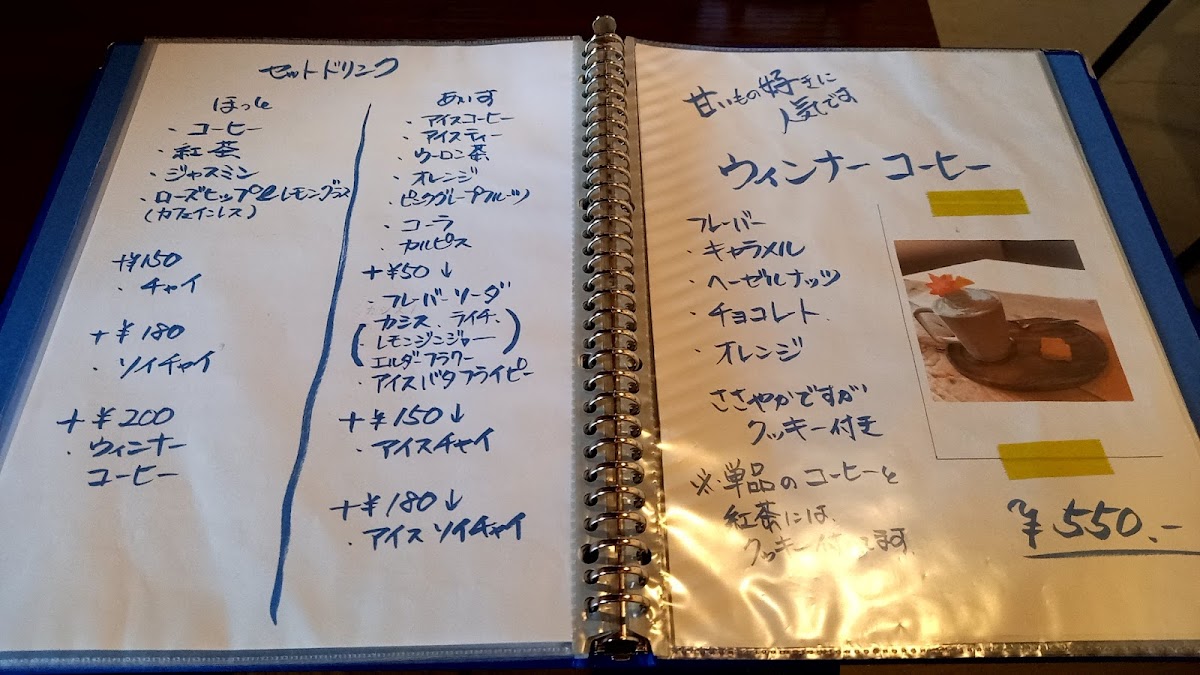 セットドリンク
ほっと
・コーヒー
・紅茶
・ジャスミン
・ローズヒップ&レモングラス
(カフェインレス)
+¥150
・チャイ
+¥180
・ソイチャイ
+¥200
・ウィンナー
コーヒー
あいす
・アイスコーヒー
・アイスティー
・ウーロン茶
・オレンジ
・ピンクグレープフルーツ
・コーラ
・カルピス
+¥50↓
・フレーバーソーダ
(カシス、ライチ、
・レモンジンジャー
エルダーフラワー)
・アイスバタフライピー
+¥150↓
・アイスチャイ
+¥180↓
・アイスソイチャイ
甘いもの好きに
人気です
ウィンナーコーヒー
フレーバー
・キャラメル
・ヘーゼルナッツ
・チョコレート
・オレンジ
ささやかですが
クッキー付き
※単品のコーヒーと
紅茶には、
クッキー付きます
¥550.-